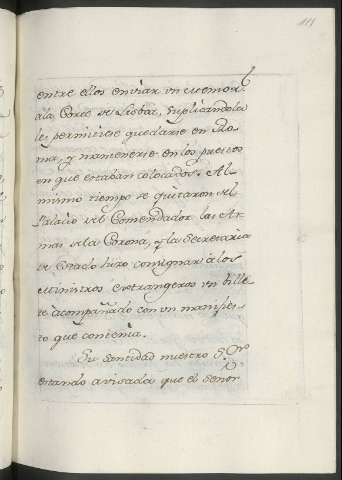 111
entre ellos enviar un memor.l
a la Corte de Lisboa, suplicandola
les permitiese quedarse en Ro-
ma, y mantenerse en los puestos
en que estaban colocados. Al
mismo tiempo se quitaron del
Palacio del Comendador las Ar-
mas de la Corona, y la Secretaria
de Estado hizo consignar à los
Ministros Extrangeros un bille-
te acompañado con un manifies-
to que contenia.
Su santidad nuestro S.or
estando avisada que el Señor